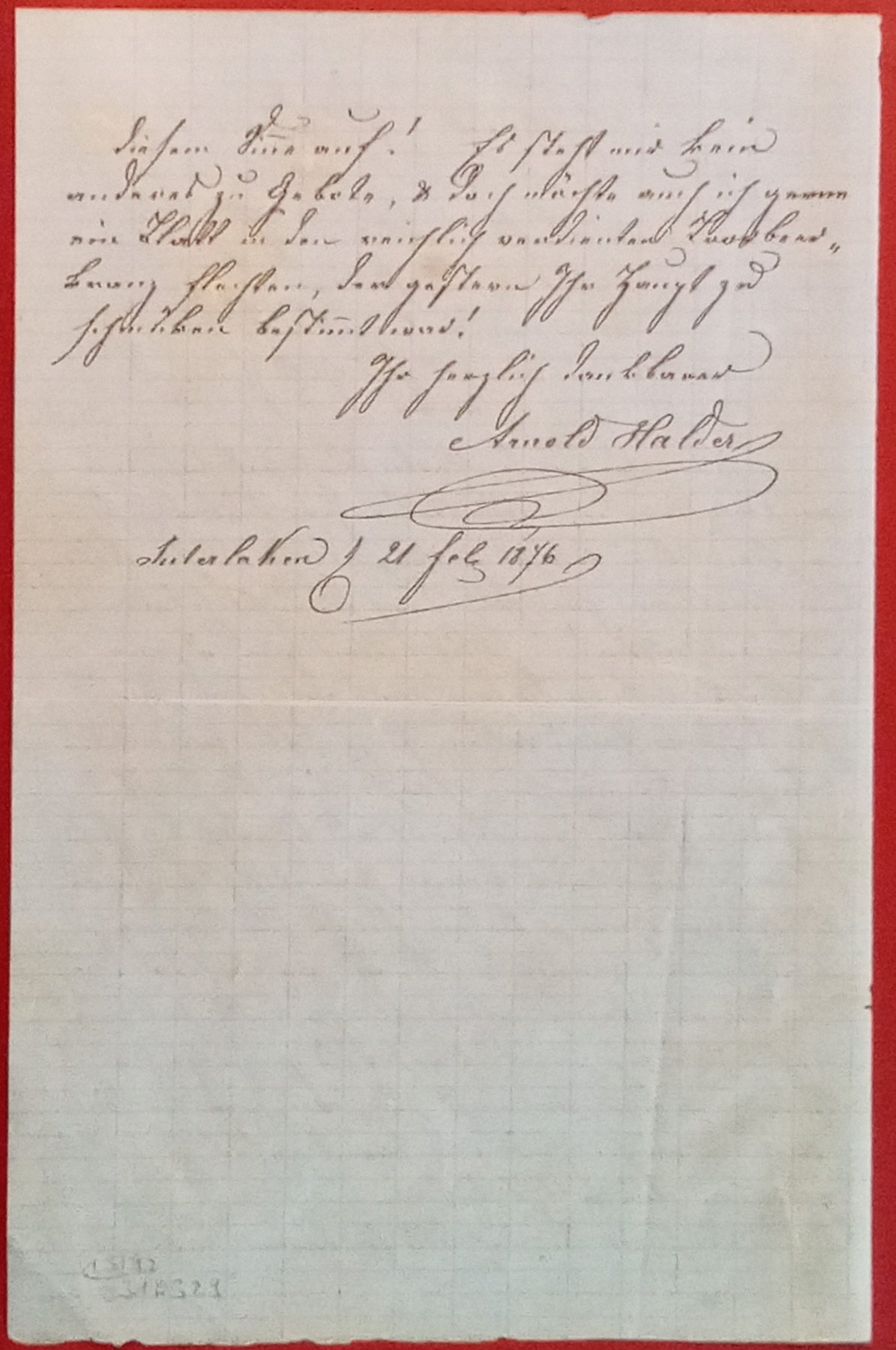 diesem Sinne auf! Es steht mir kein
anderes zu Gebote, & doch möchte auch ich gerne
ein Blatt in den reichlich verdienten Lorbeer„
kranz flechten, der gestern Ihr Haupt zu
schmüken bestimmt war!
Ihr herzlich dankbarer
Arnold Halder
Interlaken 21 Feb 1876